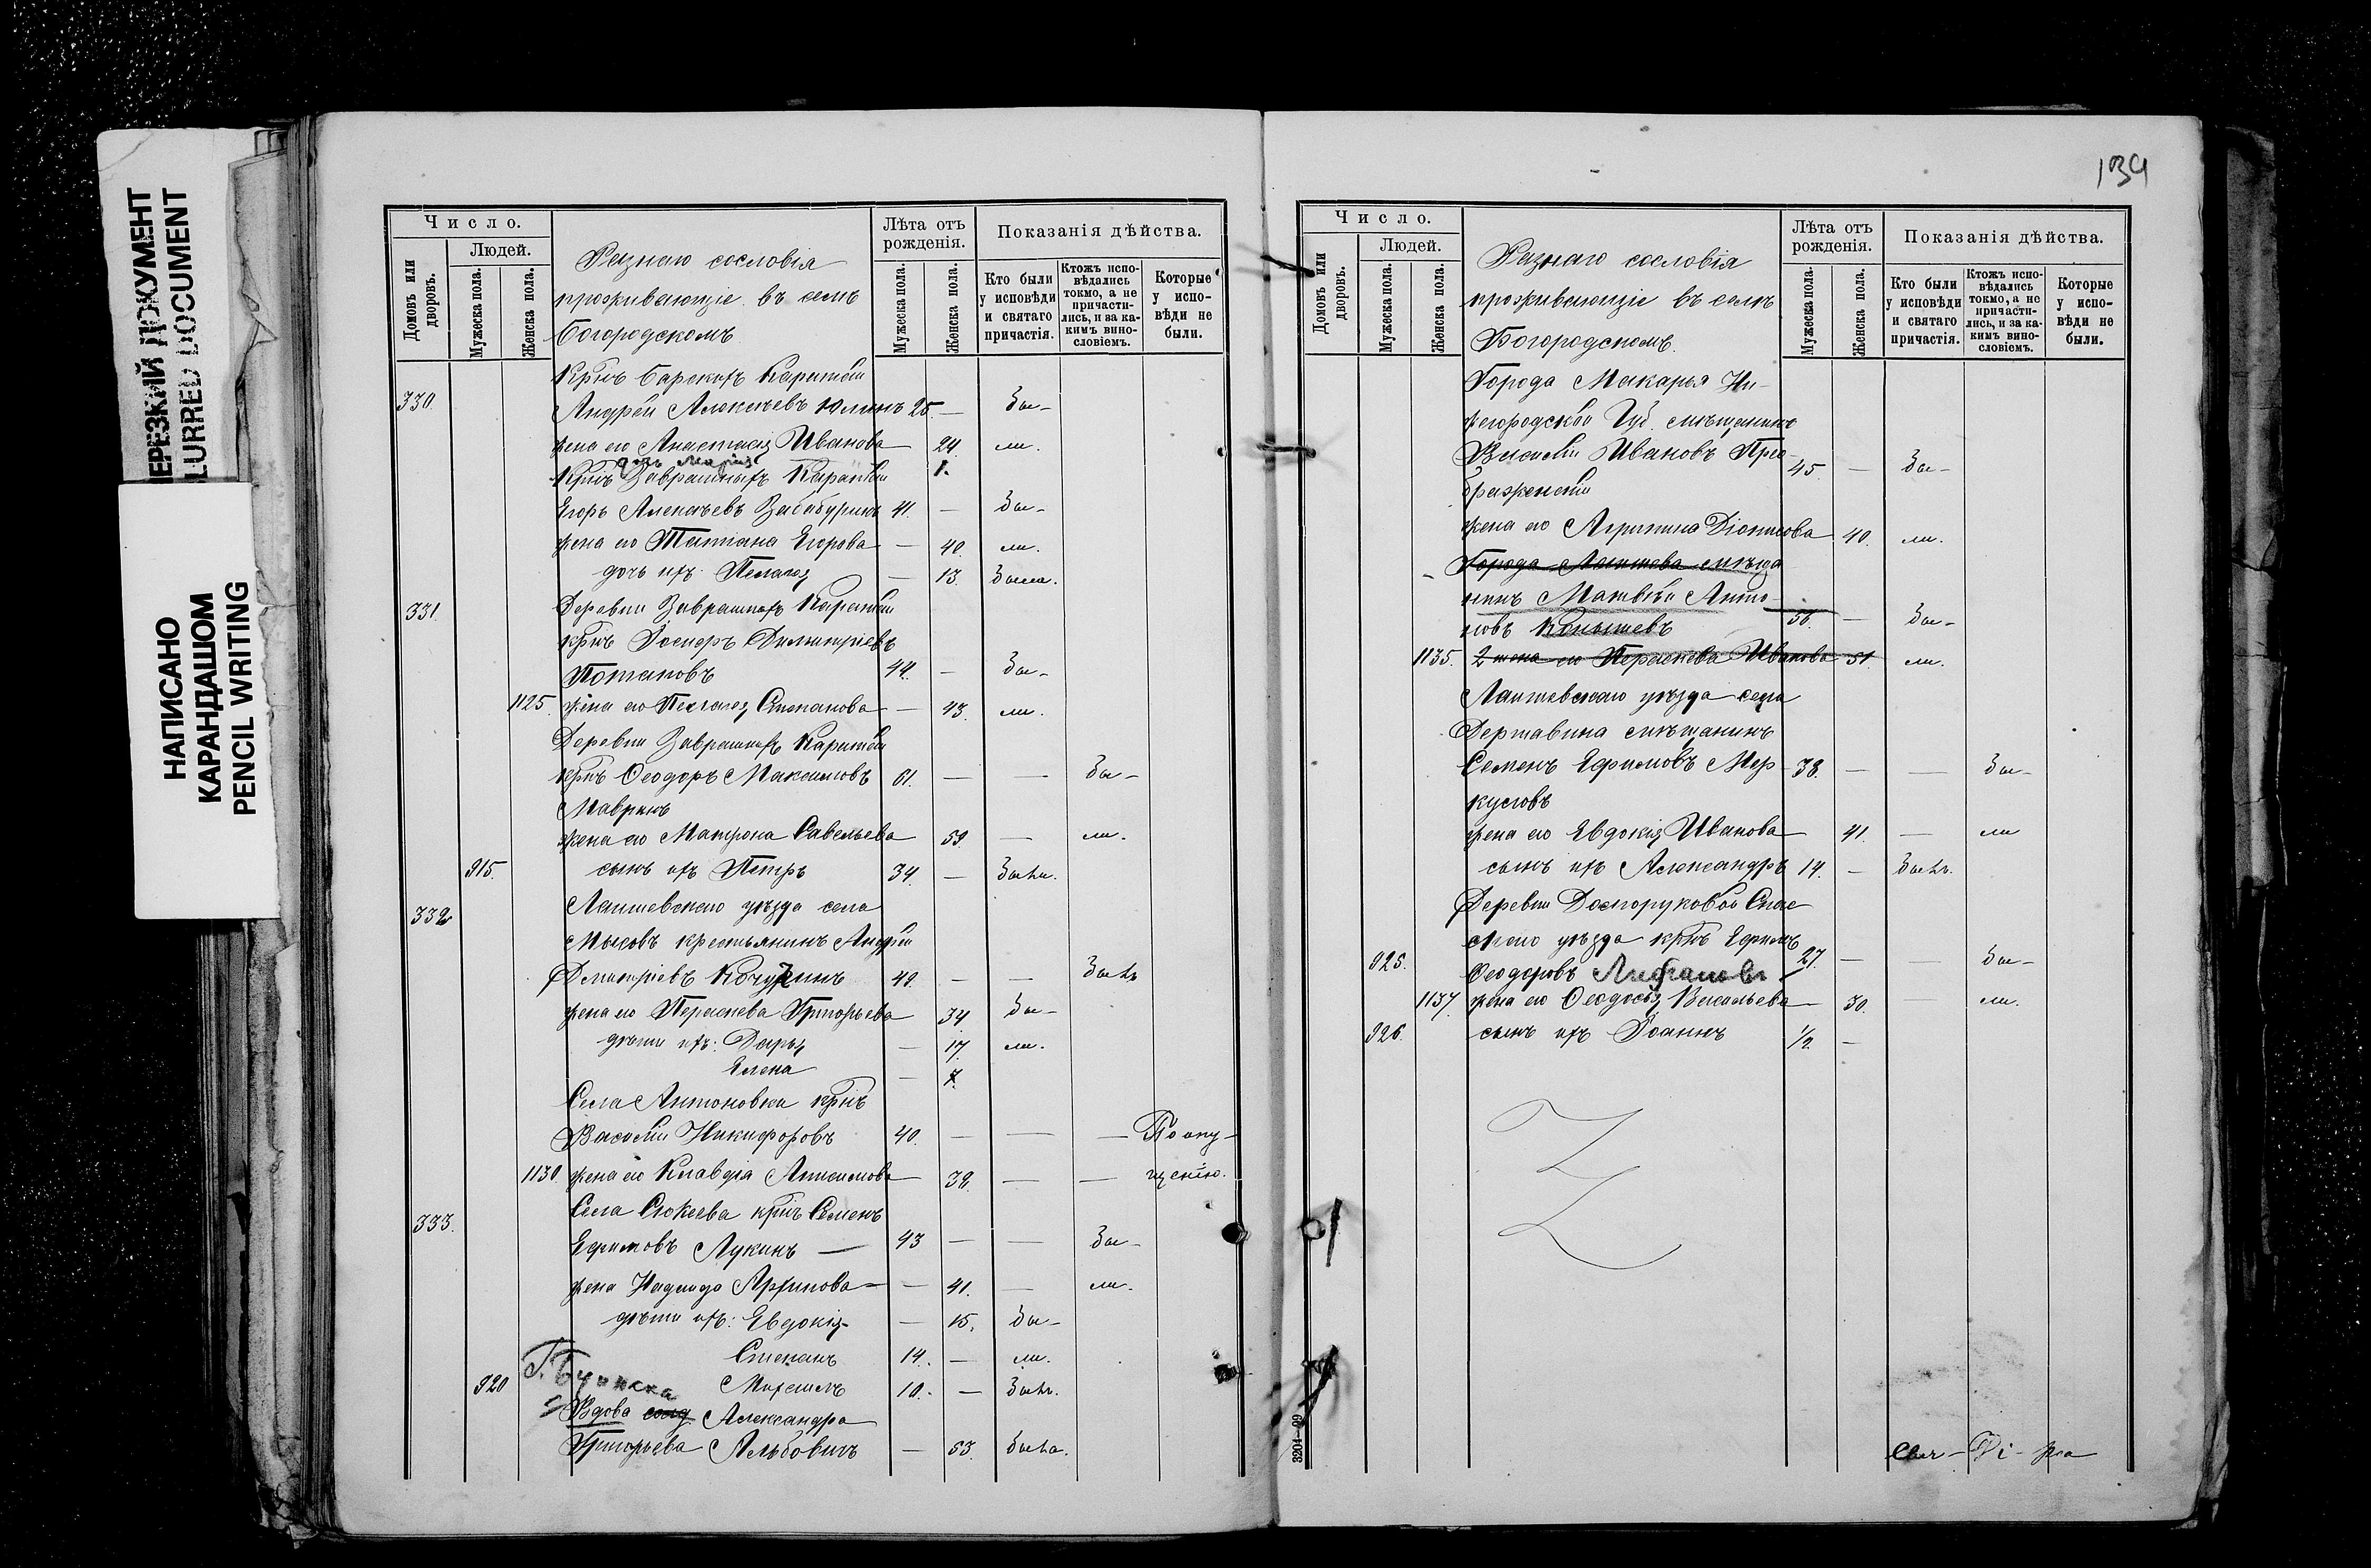 НЕРЕЗКИЙ ДОКУМЕНТ
BLURRED DOCUMENT
НАПИСАНО
КАРАНДАШОМ
PENCIL WRITING
Число.
Людей.
Домовъ или дворовъ.
Мужеска пола.
Женска пола.
Разнаго сословія
проживающіе въ селѣ
Богородскомъ
Лѣта отъ рожденія.
Мужеска пола.
Женска пола.
Показанія дѣйства.
Кто были у исповѣди и святаго причастія.
Ктожъ исповѣдались токмо, а не причастились, и за какимъ винословіемъ.
Которые у исповѣди не были.
Крнъ Барскихъ Каратай
330. Андрей Алексѣевъ Юлинъ 25 — бы-
жена его Анастасія Иванова — 24. ли.
дочь Марія 1.
Крнъ Заврашныхъ Каратай
Егоръ Алексѣевъ Забабуринъ 41. — бы-
жена его Татіана Егорова — 40. ли.
дочь ихъ Пелагея — 13. была.
331. Деревни Заврашныхъ Каратай
крнъ Іосифъ Димитріевъ
Потаповъ 44. — бы-
1125. жена его Пелагея Степанова — 43. ли.
Деревни Заврашныхъ Каратай
крнъ Ѳеодоръ Максимовъ 61. — — бы-
Мавринъ
жена его Матрона Савельева 59. — ли.
915. сынъ ихъ Петръ 34. — былъ.
332 Лаишевскаго уѣзда села
Мысовъ крестьянинъ Андрей
Димитріевъ 40. — — былъ
жена его Параскева Григорьева 34 бы-
дѣти ихъ: Дарья — 17. ли.
Елена — 7.
Села Антоновки крнъ
Василій Никифоровъ 40. — — — По опу-
1130 жена его Клавдія Анисимова — 38. — — щенію.
333. Села Сюкеева крнъ Семенъ
Ефимовъ Лукинъ — 43 — — бы-
жена Надежда — 41. — ли.
дѣти ихъ: Евдокія — 15. бы-
Степанъ 14. — ли.
Г. Буинска
920 Михаилъ 10. — былъ.
Вдова солд. Александра
Григорьева Альбовичъ — 53. была.
139
Число.
Людей.
Домовъ или дворовъ.
Мужеска пола.
Женска пола.
Разнаго сословія
проживающіе въ селѣ
Богородскомъ.
Лѣта отъ рожденія.
Мужеска пола.
Женска пола.
Показанія дѣйства.
Кто были у исповѣди и святаго причастія.
Ктожъ исповѣдались токмо, а не причастились, и за какимъ винословіемъ.
Которые у исповѣди не были.
Города Макарья Ни-
жегородской Губ. мѣщанинъ
Василій Ивановъ Прео- 45. — бы-
браженскій
жена его Агрипина Діонисова 40. ли.
Города Лаишева мѣща
нинъ Матвѣй Анто-
новъ Конышевъ 56. — бы-
1135. 2 жена его Параскева Иванова 51. ли.
Лаишевскаго уѣзда села
Державина мѣщанинъ
Семенъ Ефимовъ Мер- 38. — — бы-
куловъ
жена его Евдокія Иванова 41. — ли
сынъ ихъ Александръ 14. — былъ.
Деревни Долгоруковой Спас
скаго уѣзда крнъ Ефимъ
925. Ѳеодоровъ 27. — — бы-
1137 жена его Ѳеодосья Васильева 30. ли.
926. сынъ ихъ Іоаннъ 1/2. —
Свя-
3204—99